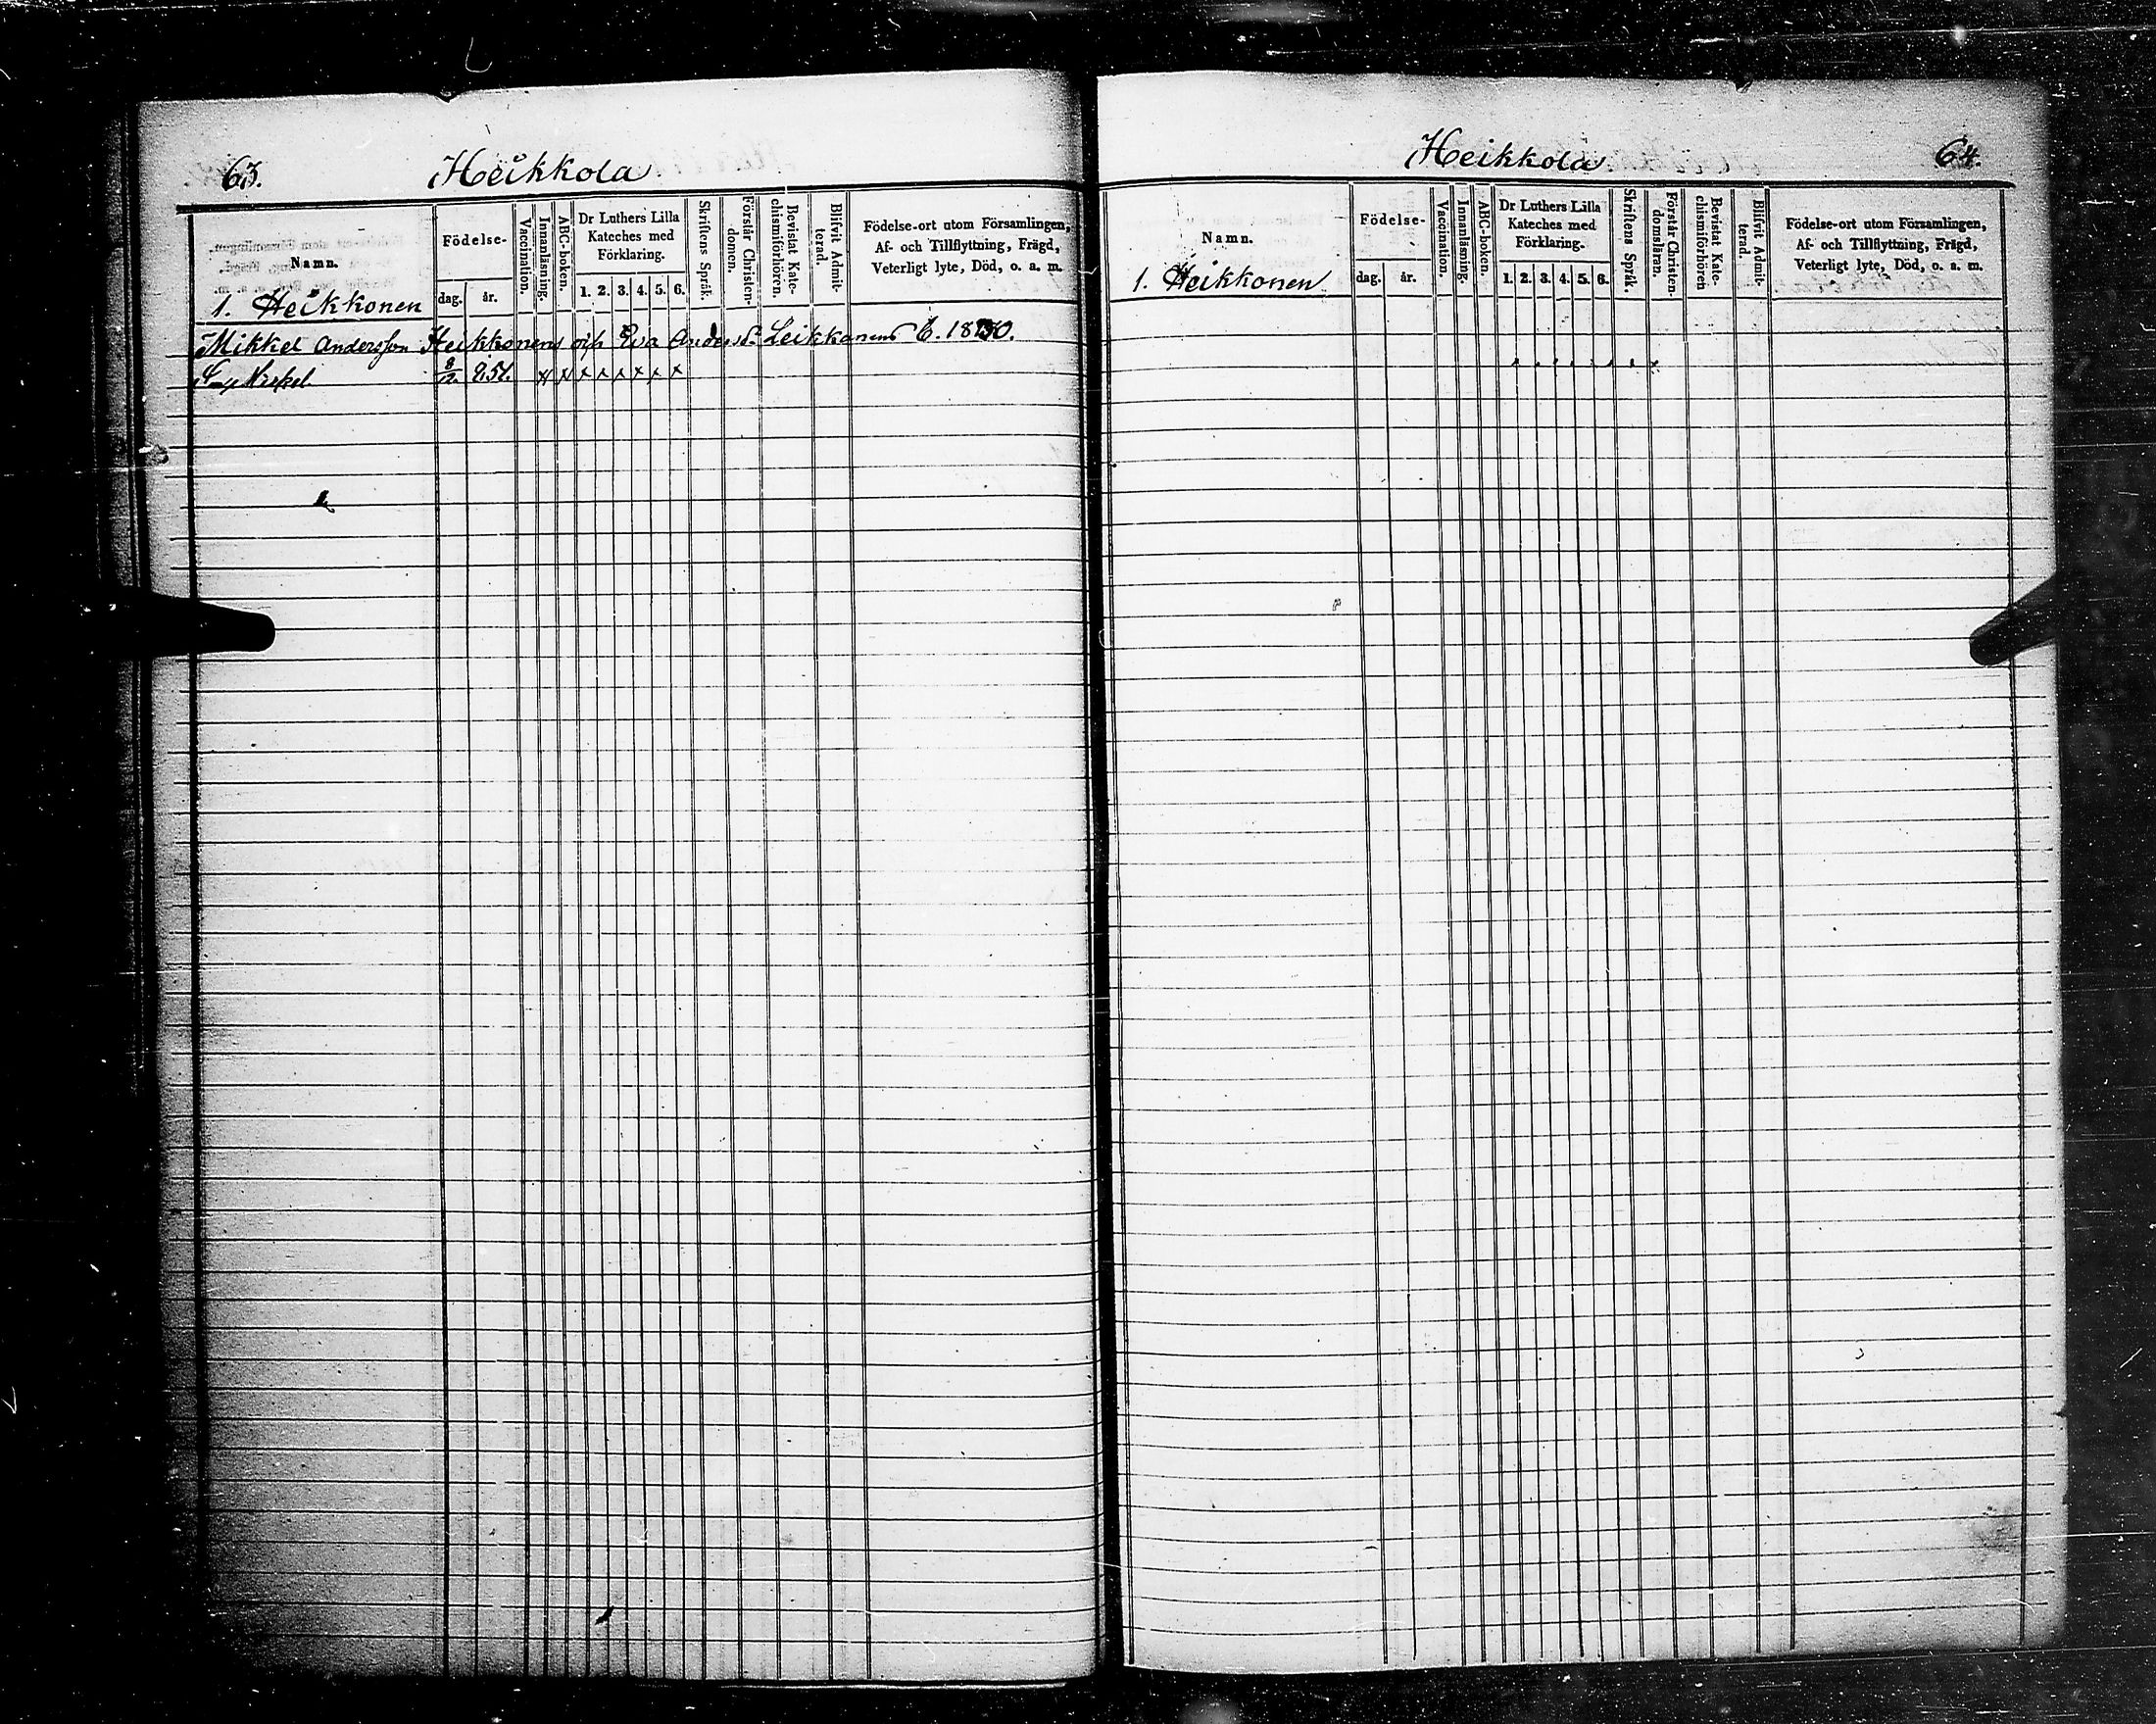 63. Heikkola
Namn.
Födelse-
dag. år.
Vaccination.
Innanläsning.
ABC-boken.
Dr Luthers Lilla
Kateches med
Förklaring.
1. 2. 3. 4. 5. 6.
Skriftens Språk.
Förstår Christen-
domen.
Bevistat Kate-
chismiförhören.
Blifvit Admit-
terad.
Födelse-ort utom Församlingen,
Af- och Tillflyttning, Frägd,
Veterligt lyte, Död, o. a. m.
1. Heikkonen
Mikkel Andersson Heikkonens o Eva Andersd. Leikkanens
8/12. 851. x x x x x x x x
Heikkola 64.
Namn.
Födelse-
dag. år.
Vaccination.
Innanläsning.
ABC-boken.
Dr Luthers Lilla
Kateches med
Förklaring.
1. 2. 3. 4. 5. 6.
Skriftens Språk.
Förstår Christen-
domsläran.
Bevistat Kate-
chismiförhören
Blifvit Admit-
terad.
Födelse-ort utom Församlingen,
Af- och Tillflyttning, Frägd,
Veterligt lyte, Död, o. a. m.
1. Heikkonen